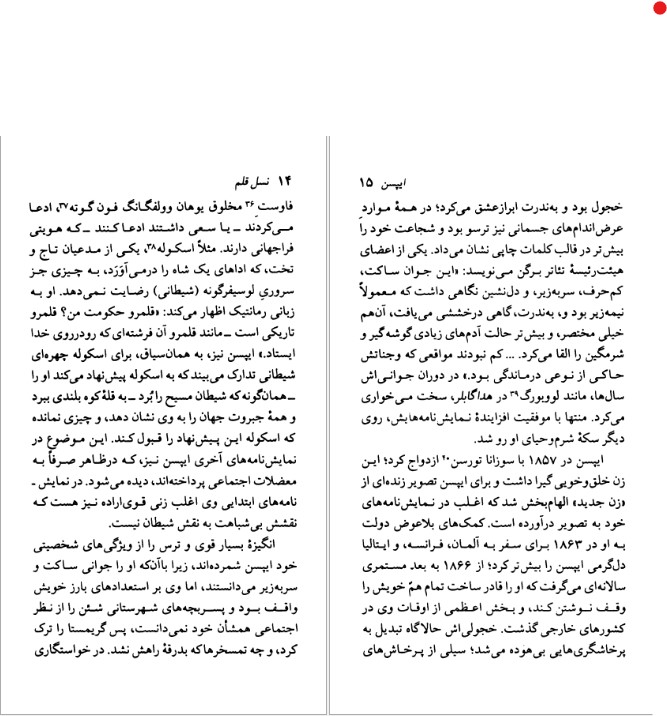 ۱۴ نسل قلم
فاوستِ ۳۶ مخلوق یوهان وولفگانگ فون گوته۳۷، ادعا
می‌کردند ــ یا سعی داشتند ادعا کنند ــ که هویتی
فراجهانی دارند. مثلاً اسکوله۳۸، یکی از مدعیان تاج و
تخت، که اداهای یک شاه را درمی‌آوَرَد، به چیزی جز
سروریِ لوسیفرگونه (شیطانی) رضایت نمی‌دهد. او به
زبانی رمانتیک اظهار می‌کند: «قلمرو حکومت من؟ قلمرو
تاریکی است ــ مانند قلمرو آن فرشته‌ای که رودرروی خدا
ایستاد.» ایپسن نیز، به همان‌سیاق، برای اسکوله چهره‌ای
شیطانی تدارک می‌بیند که به اسکوله پیش‌نهاد می‌کند او را
ــ همان‌گونه که شیطان مسیح را بُرد ــ به قلهٔ کوه بلندی ببرد
و همهٔ جبروت جهان را به وی نشان دهد، و چیزی نمانده
که اسکوله این پیش‌نهاد را قبول کند. این موضوع در
نمایش‌نامه‌های آخری ایپسن نیز، که درظاهر صرفاً به
معضلات اجتماعی پرداخته‌اند، دیده می‌شود. در نمایش ـ
نامه‌های ابتدایی وی اغلب زنی قوی‌اراده نیز هست که
نقشش بی‌شباهت به نقش شیطان نیست.
انگیزهٔ بسیار قوی و ترس را از ویژگی‌های شخصیتی
خود ایپسن شمرده‌اند، زیرا باآن‌که او را جوانی ساکت و
سربه‌زیر می‌دانستند، اما وی بر استعدادهای بارز خویش
واقف بود و پسربچه‌های شهرستانی شئن را از نظر
اجتماعی همشأن خود نمی‌دانست، پس گریمستا را ترک
کرد، و چه تمسخرها که بدرقهٔ راهش نشد. در خواستگاری
ایپسن ۱۵
خجول بود و به‌ندرت ابرازعشق می‌کرد؛ در همهٔ مواردِ
عرض‌اندام‌های جسمانی نیز ترسو بود و شجاعت خود را
بیش‌تر در قالب کلمات چاپی نشان می‌داد. یکی از اعضای
هیئت‌رئیسهٔ تئاتر برگن می‌نویسد: «این جوان ساکت،
کم‌حرف، سربه‌زیر، و دل‌نشین نگاهی داشت که معمولاً
نیمه‌زیر بود و، به‌ندرت، گاهی درخششی می‌یافت، آن‌هم
خیلی مختصر، و بیش‌تر حالت آدم‌های زیادی گوشه‌گیر و
شرمگین را القا می‌کرد. ... کم نبودند مواقعی که وجناتش
حاکی از نوعی درماندگی بود.» در دوران جوانی‌اش
سال‌ها، مانند لووبورگ ۳۹ در هداگابلر، سخت می‌خواری
می‌کرد. منتها با موفقیت افزایندهٔ نمایش‌نامه‌هایش، روی
دیگر سکهٔ شرم‌وحیای او رو شد.
ایپسن در ۱۸۵۷ با سوزانا تورسن۴۰ ازدواج کرد؛ این
زن خلق‌وخویی گیرا داشت و برای ایپسن تصویر زنده‌ای از
«زن جدید» الهام‌بخش شد که اغلب در نمایش‌نامه‌های
خود به تصویر درآورده است. کمک‌های بلاعوض دولت
به او در ۱۸۶۳ برای سفر به آلمان، فرانسه، و ایتالیا
دل‌گرمی ایپسن را بیش‌تر کرد؛ از ۱۸۶۶ به بعد مستمری
سالانه‌ای می‌گرفت که او را قادر ساخت تمام همّ خویش را
وقف نوشتن کند، و بخش اعظمی از اوقات وی در
کشورهای خارجی گذشت. خجولی‌اش حالاگاه تبدیل به
پرخاشگری‌هایی بی‌هوده می‌شد؛ سیلی از پرخاش‌های